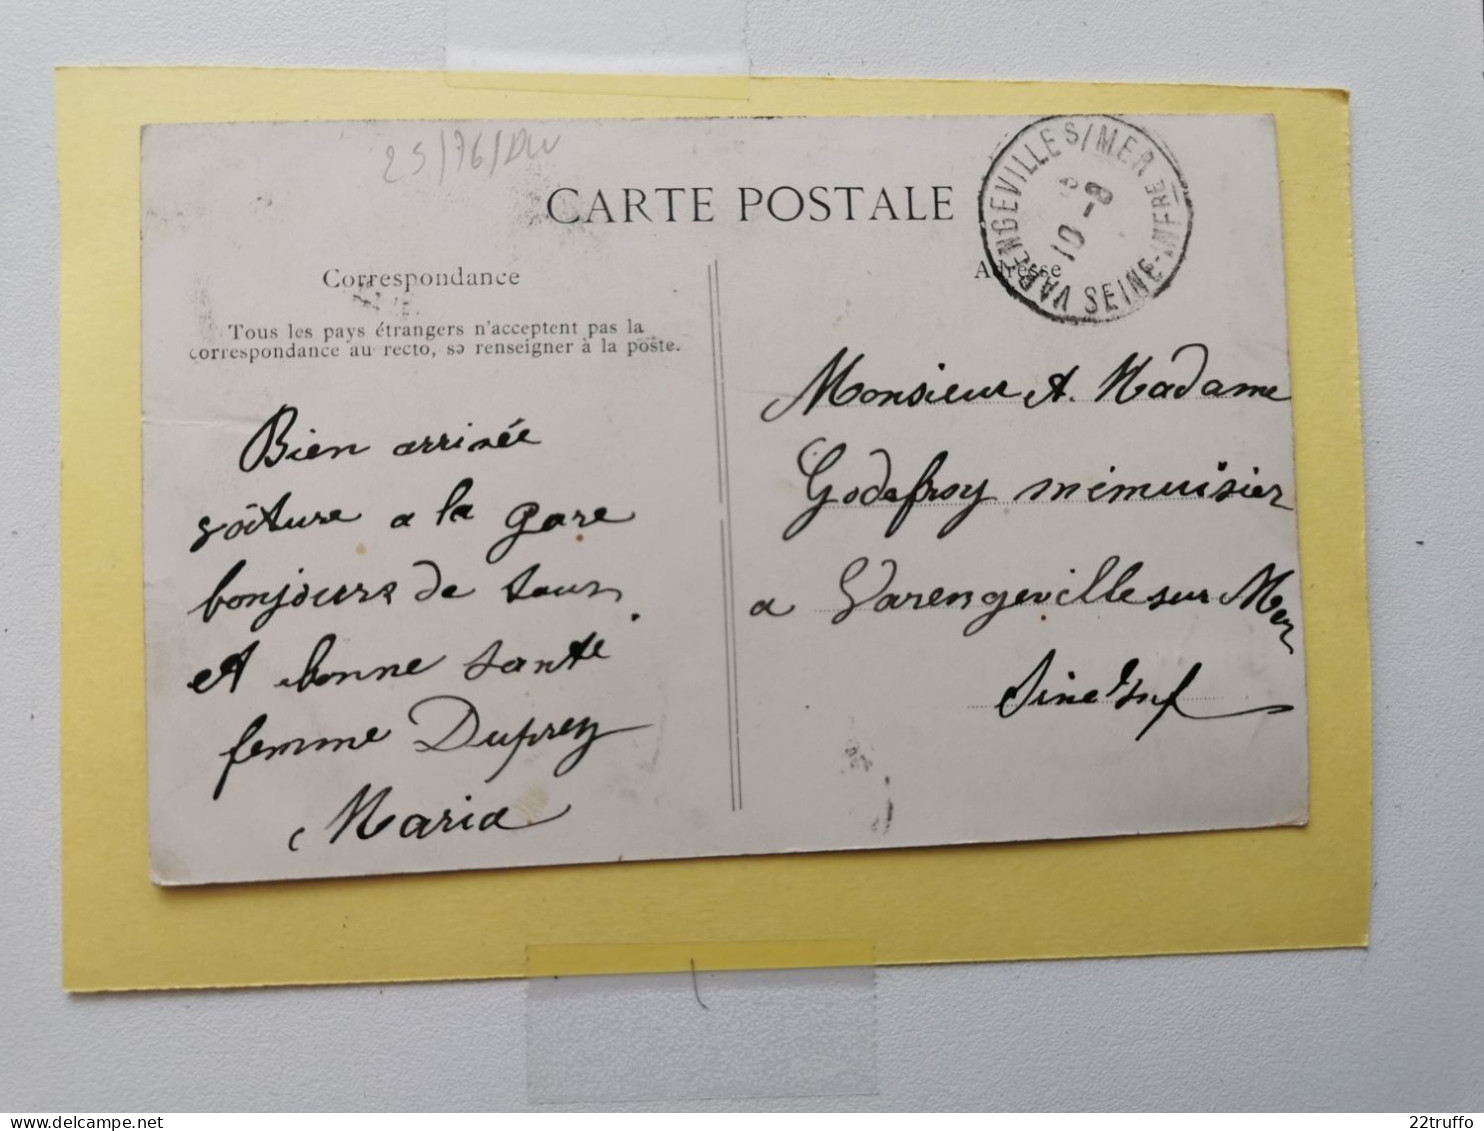 25/76/DW
CARTE POSTALE
VARENGEVILLE S/MER
8-8
10
SEINE-INFRE
Correspondance
Adresse
Tous les pays étrangers n'acceptent pas la
correspondance au recto, se renseigner à la poste.
Bien arrivée
voiture a la gare
bonjours de tous
et bonne santé
femme Duprey
Maria
Monsieur et Madame
Godefroy menuisier
a Varengeville sur Mer
Sine Inf
delcampe.net
22truffo